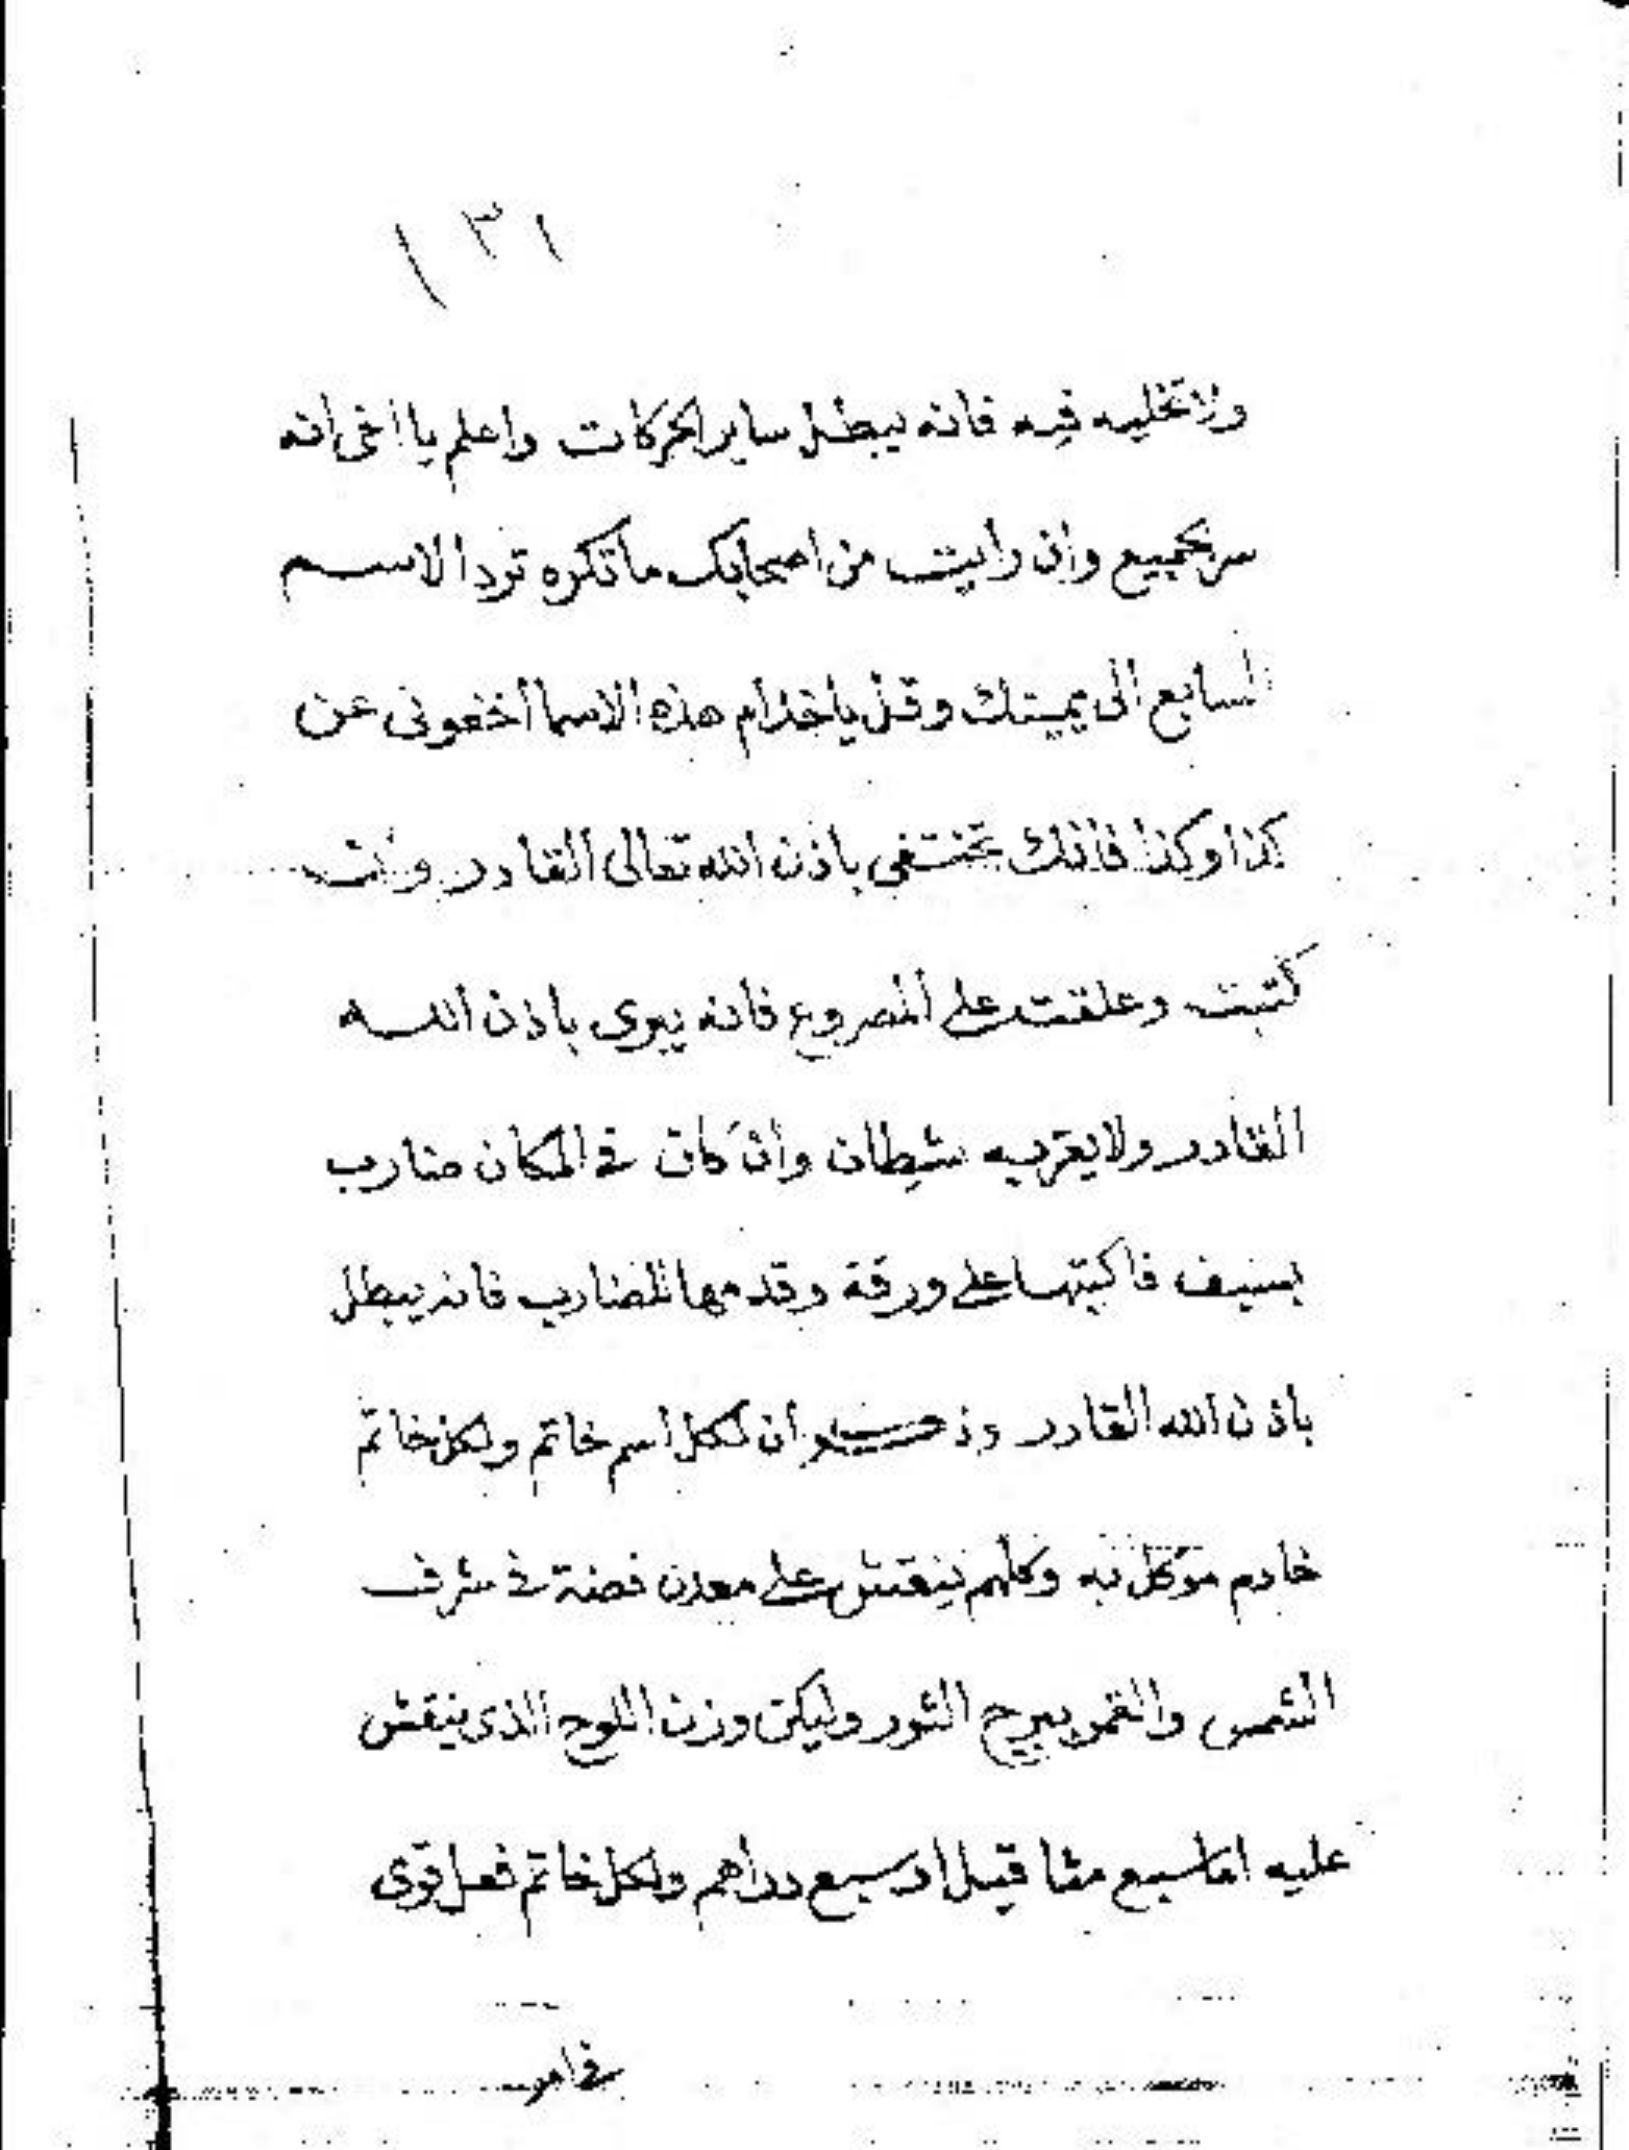 ١٣١
ولا تخليه فيه فانه يبطل ساير الحركات واعلم يا اخى انه
سر عجيع وان رايت من اصحابك ما تكره ترد الاسم
السابع الى يمينك وقل يا خدام هذه الاسما اخفونى عن
كذا وكذا فانك تختفى باذن الله تعالى القادر وان
كتبت وعلقت على المصروع فانه يبرى باذن الله
القادر ولا يقربه شيطان وان كان فى المكان ضارب
بسيف فاكتبها على ورقة وقدمها للضارب فانه يبطل
باذن الله القادر ان لكل اسم خاتم ولكل خاتم
خادم موكل به وكلهم ينقش على معدن فضة فى شرف
الشمس والقمر ببرج الثور وليكن وزن اللوح الذى ينقش
عليه اما سبع مثاقيل او سبع دراهم ولكل خاتم فعل قوى
فى امر